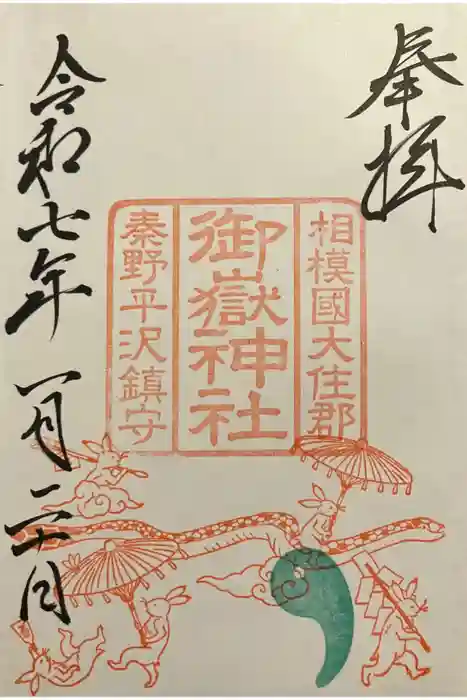 奉拝
相模國大住郡
御嶽神社
秦野平沢鎮守
令和七年
一月二十日